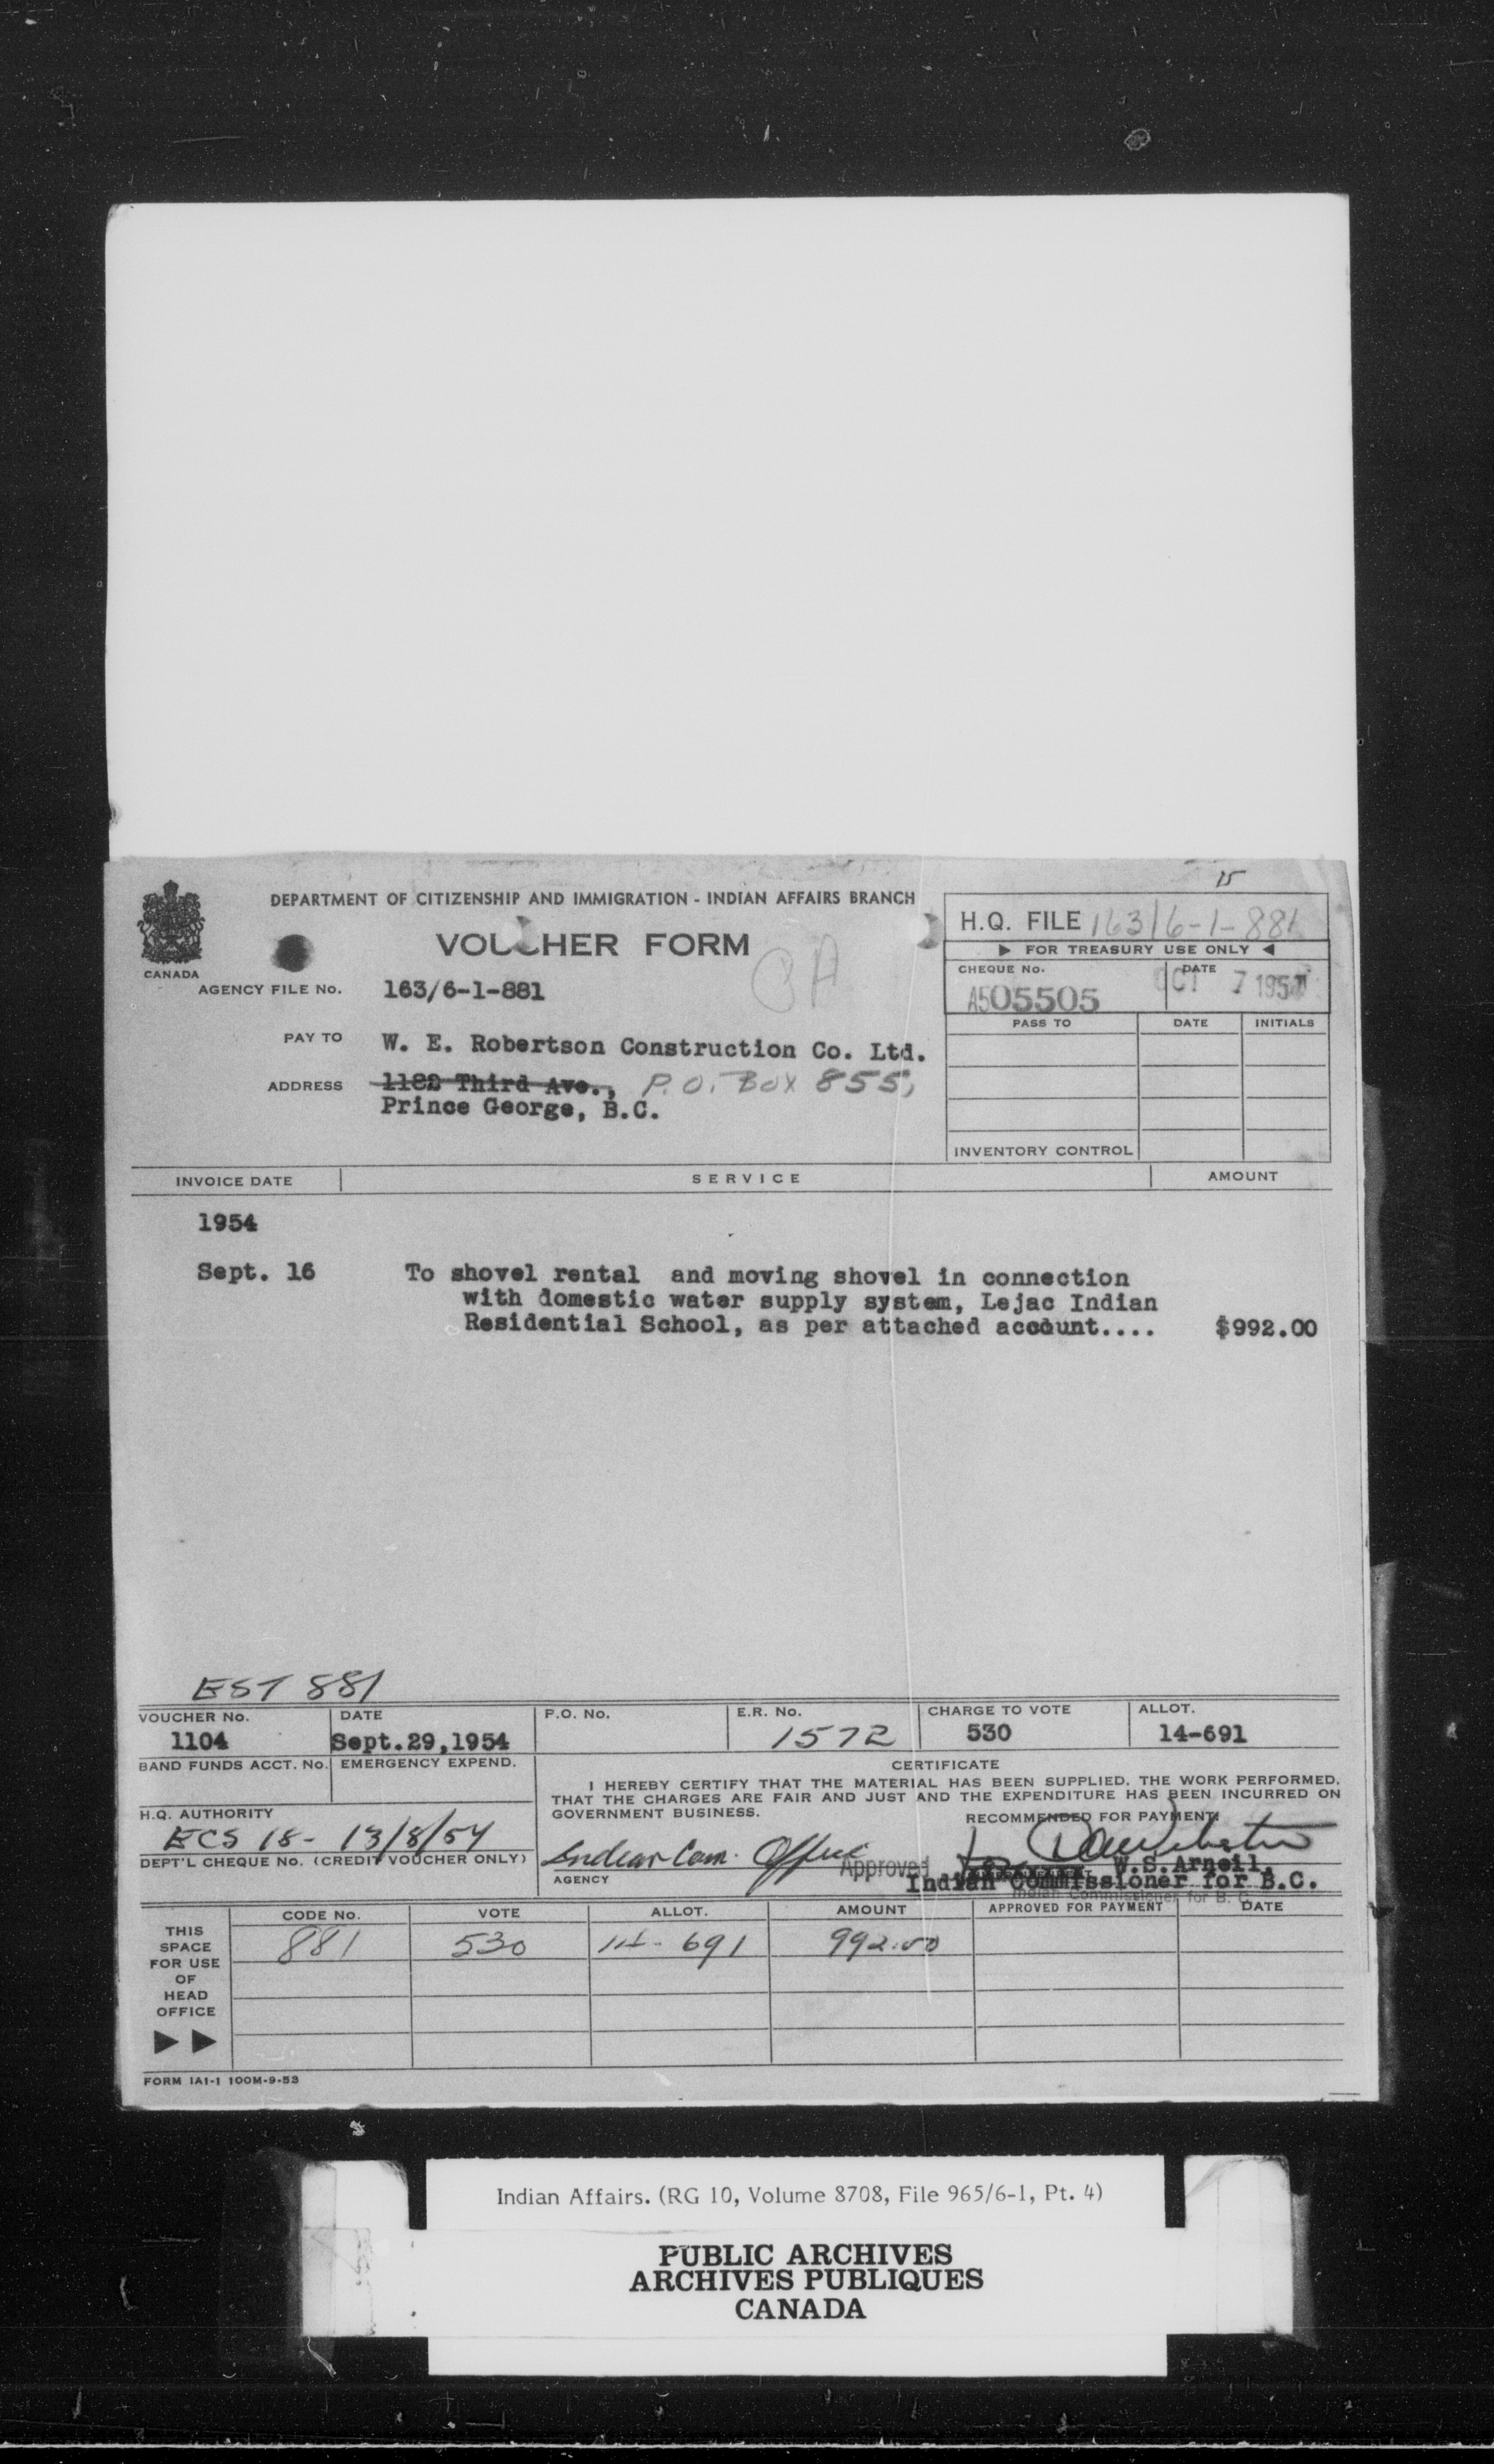 15
DEPARTMENT OF CITIZENSHIP AND IMMIGRATION - INDIAN AFFAIRS BRANCH
VOUCHER FORM
CANADA
H.Q. FILE 163/6-1-881
▶ FOR TREASURY USE ONLY ◀
CHEQUE No. DATE
A505505 OCT 7 1954
AGENCY FILE No. 163/6-1-881
PASS TO DATE INITIALS
PAY TO W. E. Robertson Construction Co. Ltd.
ADDRESS 1182 Third Ave., P.O. Box 855,
Prince George, B.C.
INVENTORY CONTROL
INVOICE DATE SERVICE AMOUNT
1954
Sept. 16 To shovel rental and moving shovel in connection
with domestic water supply system, Lejac Indian
Residential School, as per attached account.... $992.00
EST 881
VOUCHER No. DATE P.O. No. E.R. No. CHARGE TO VOTE ALLOT.
1104 Sept.29,1954 1572 530 14-691
BAND FUNDS ACCT. No. EMERGENCY EXPEND.
CERTIFICATE
I HEREBY CERTIFY THAT THE MATERIAL HAS BEEN SUPPLIED, THE WORK PERFORMED,
THAT THE CHARGES ARE FAIR AND JUST AND THE EXPENDITURE HAS BEEN INCURRED ON
GOVERNMENT BUSINESS.
RECOMMENDED FOR PAYMENT:
H.Q. AUTHORITY
ECS 18- 13/8/54
DEPT'L CHEQUE No. (CREDIT VOUCHER ONLY)
Indian Com. Office
AGENCY
Approved
W.S.Arneil,
Indian Commissioner for B.C.
Indian Commissioner for B. C.
CODE No. VOTE ALLOT. AMOUNT APPROVED FOR PAYMENT DATE
881 530 14- 691 992.00
THIS
SPACE
FOR USE
OF
HEAD
OFFICE
▶▶
FORM IA1-1 100M-9-53
Indian Affairs. (RG 10, Volume 8708, File 965/6-1, Pt. 4)
PUBLIC ARCHIVES
ARCHIVES PUBLIQUES
CANADA